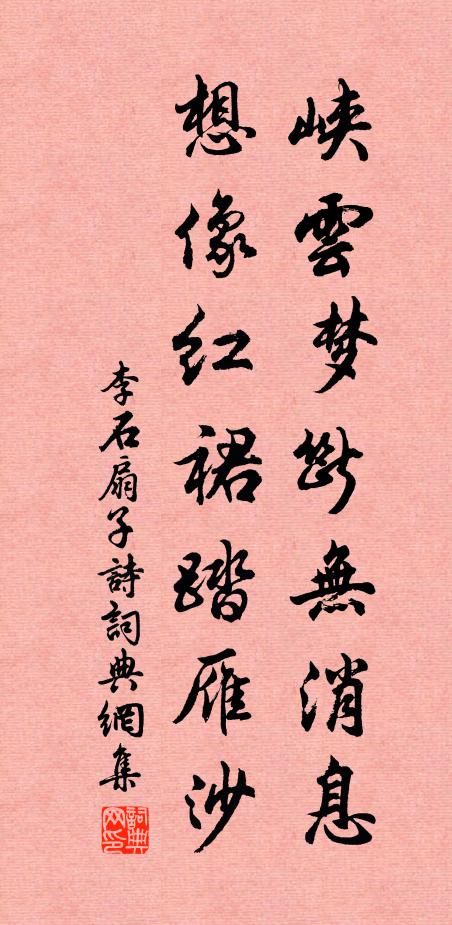 峡雲梦斷無消息
想像红裙踏雁沙
李石扇子詩詞典網集
詞典网印